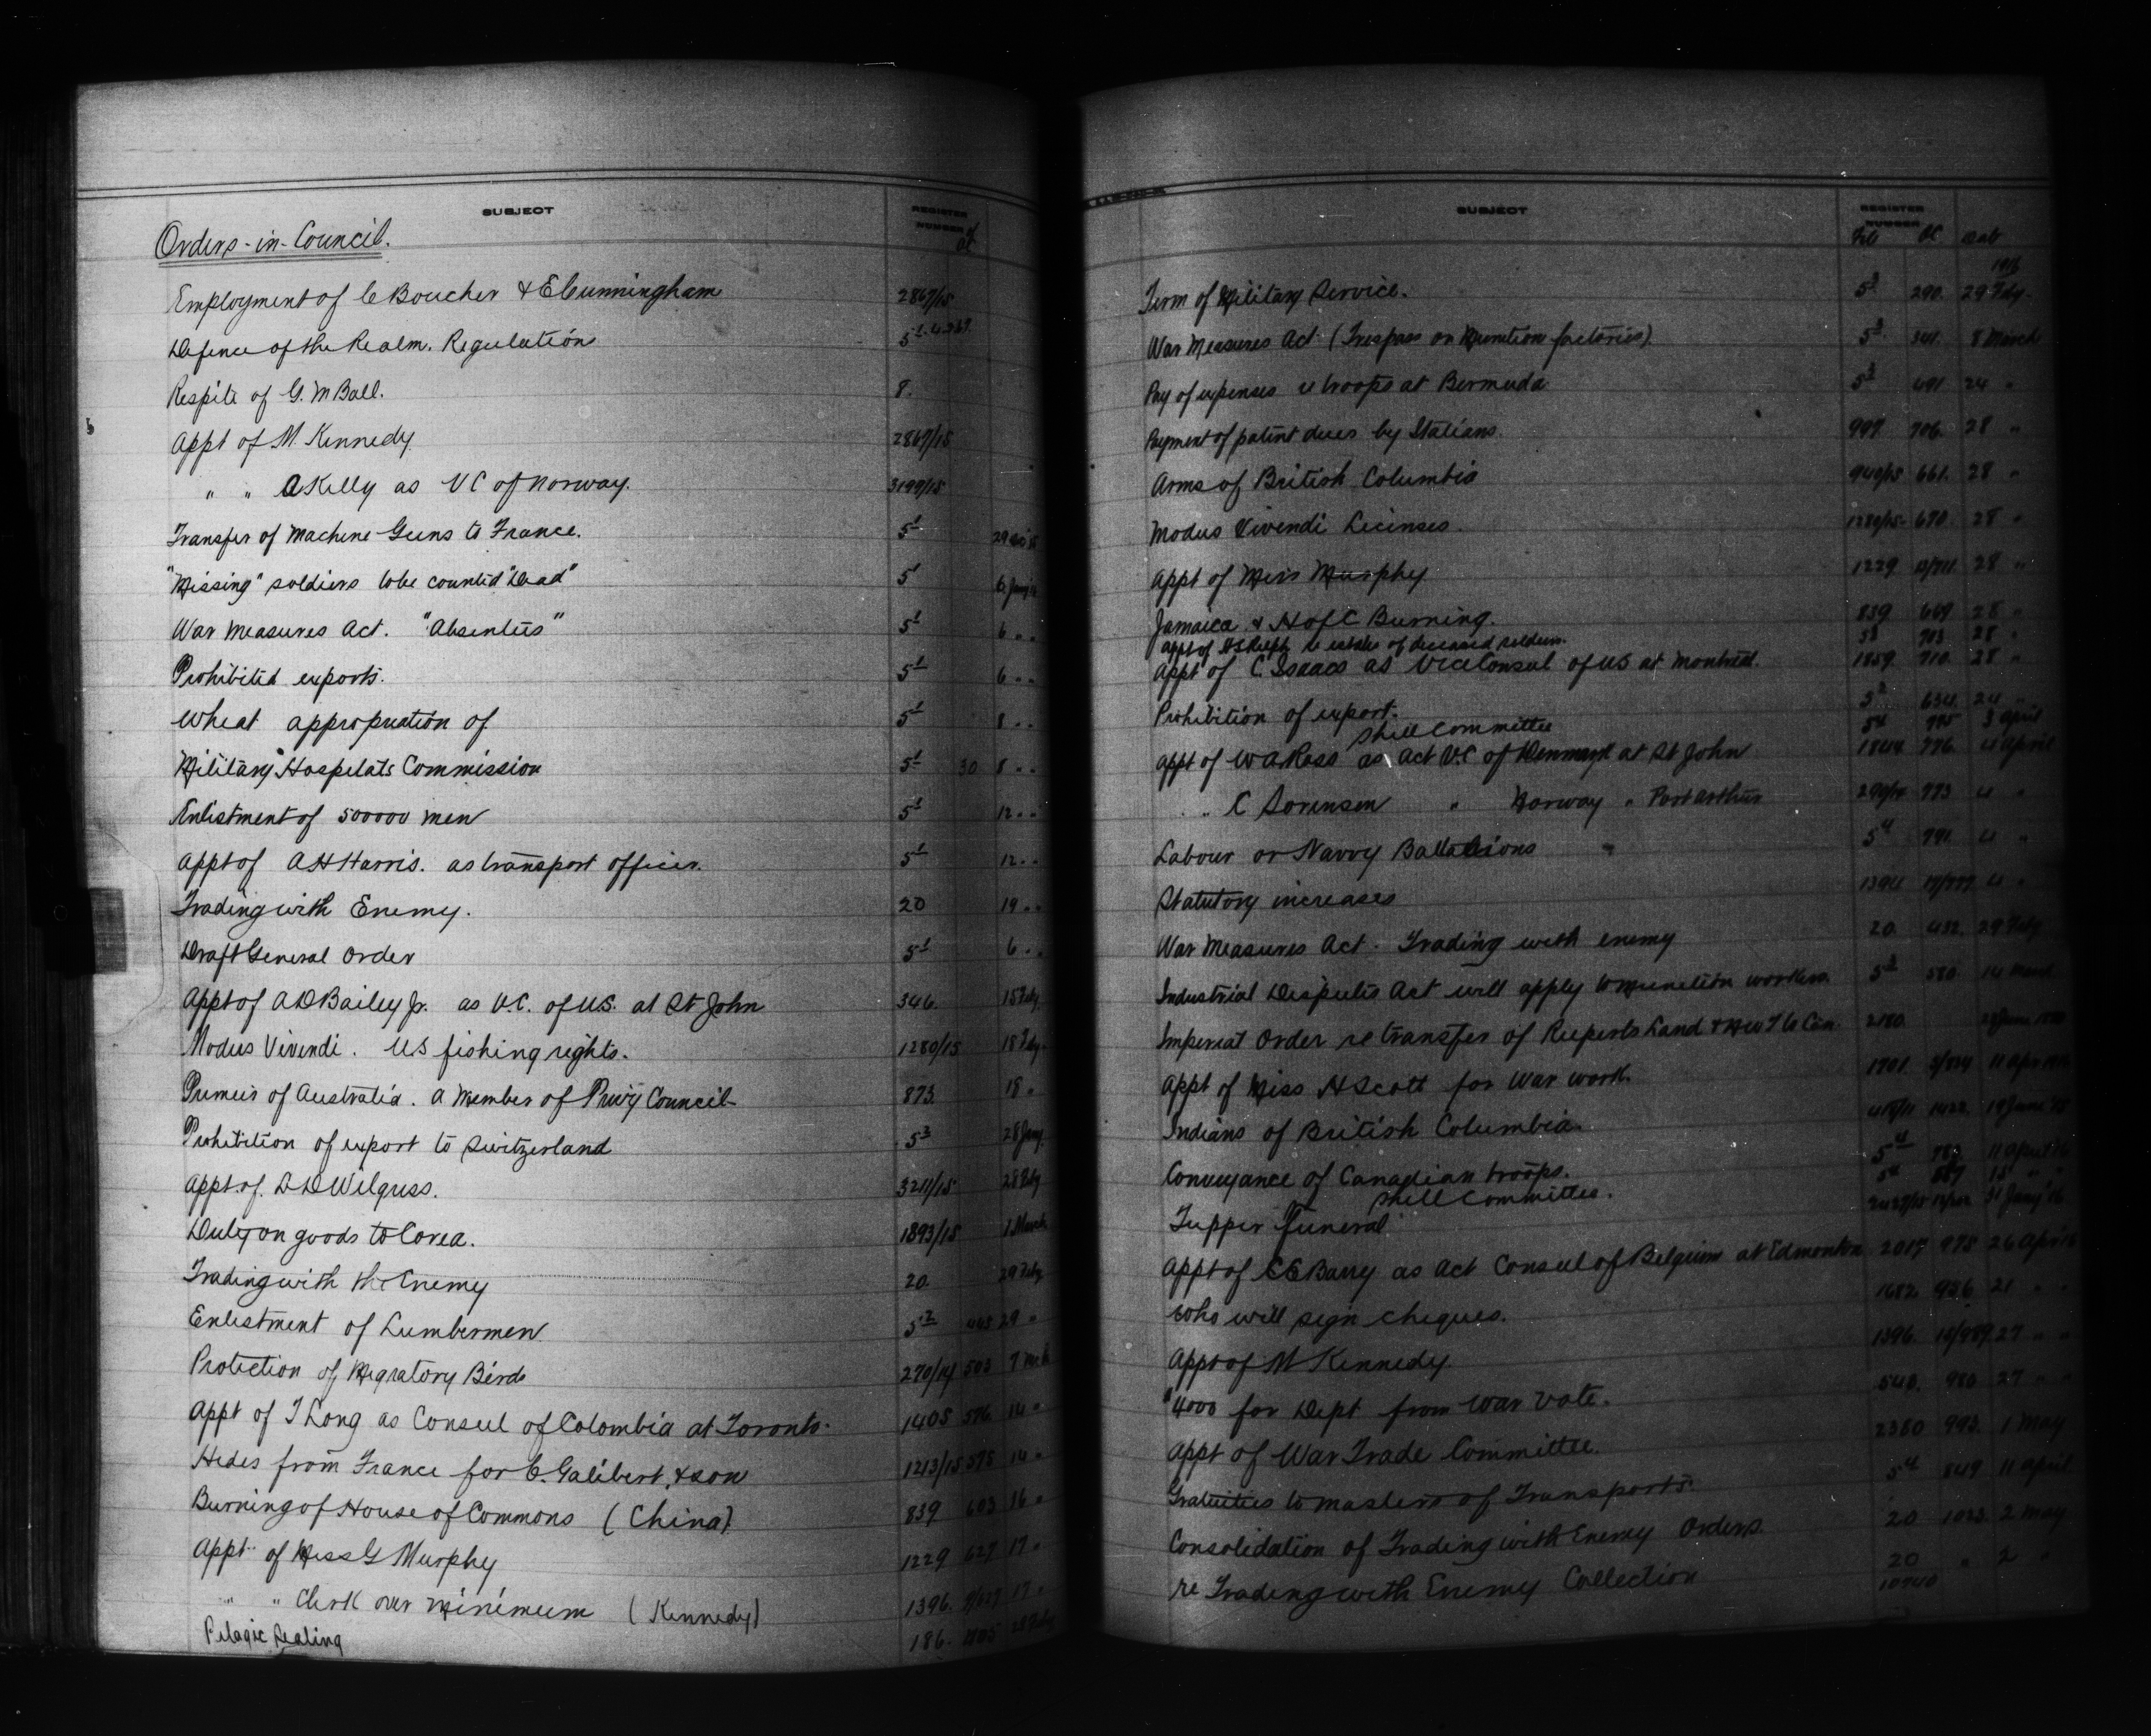 SUBJECT REGISTER NUMBER of OC
Orders-in-Council.
Employment of C Boucher & E Cunningham 2867/15
Defence of the Realm. Regulations 5-1
Respite of G. M Ball. 8.
Appt of M. Kennedy 2867/15
" " A Kelly as V C of Norway. 3199/15
Transfer of Machine Guns to France. 5-1 29
"Missing" soldiers to be counted "Dead" 5-1 6 Jany
War Measures Act. "Absentees" 5-1 6 " "
Prohibited exports. 5-1 6 " "
Wheat appropriation of 5-1 8 " "
Military Hospitals Commission 5-1 30 8 " "
Enlistment of 500000 men 5-1 12 " "
Appt of A H Harris. as transport officer. 5-1 12 " "
Trading with Enemy. 20 19 " "
Draft General Order 5-1 6 " "
Appt of A D Bailey Jr. as V.C. of U.S. at St John 346. 15 Feby
Modus Vivendi. U S fishing rights. 1280/15 18 Feby
Premier of Australia. a Member of Privy Council 873. 18 "
Prohibition of export to Switzerland 5-3 28 Jany
Appt of. L D Wilgress. 3211/15 28 Feby
Duty on goods to Corea. 1893/15 1 March
Trading with the Enemy 20 29 Feby
Enlistment of Lumbermen 5-2 29 "
Protection of Migratory Birds 270/14 503 7 Mch
Appt of T Long as Consul of Colombia at Toronto. 1405 576 14 "
Hides from France for C. Galibert, & son 1213/15 575 14 "
Burning of House of Commons (China) 839 603 16 "
Appt of Miss G Murphy 1229 627 17 "
" " Clerk over minimum (Kennedy) 1396. 9/627 17 "
Pelagic Sealing 186.
SUBJECT REGISTER NUMBER File OC Date
1916
Term of Military Service. 5-3 290. 29 Feby.
War Measures Act (Trespass on Munition factories) 5-3 341. 8 March
Pay of expenses re troops at Bermuda 5-3 691 24 "
Payment of patent dues by Italians. 997 706. 28 "
Arms of British Columbia 940/15 661. 28 "
Modus Vivendi Licenses. 1280/15 670. 28 "
Appt of Miss Murphy 1229 28 "
Jamaica & H of C Burning. 839 669 28 "
Appt of re estates of deceased soldiers. 703 28 "
Appt of C. Isaacs as Vice Consul of U S at Montreal. 1859. 710. 28 "
Prohibition of export. 5-2 634. 24 "
Shell Committee 5-4 3 April
Appt of W A Ross as Act V.C. of Denmark at St John 1844 776. 4 April
" " C Sorensen " Norway " Port Arthur 773 4 "
Labour or Navvy Battalions 5-4 791. 4 "
Statutory increases 1394 4 "
War Measures Act. Trading with enemy 20. 432. 29 Feby
Industrial Disputes Act will apply to munition workers. 5-3 580 14 March
Imperial Order re transfer of Ruperts Land & N W T to Can. 2180.
Appt of Miss H Scott for War work. 1701. 11 Apr
Indians of British Columbia. 1422 19 June
Conveyance of Canadian troops. 5-4 783. 11 April 16
Shell Committee. 5-4 15 "
Tupper funeral 31 Jany '16
Appt of E E Barry as Act Consul of Belgium at Edmonton 2017 978 26 Apr 16
Who will sign cheques. 1682 956 21 " "
Appt of M Kennedy. 1396. 10/989. 27 " "
$4000 for Dept from War Vote. 540. 980 27 " "
Appt of War Trade Committee. 2360 993. 1 May
Gratuities to masters of Transports. 5-4 849 11 April
Consolidation of Trading with Enemy Orders. 20 1023. 2 May
re Trading with Enemy Collection 20 " 2 "